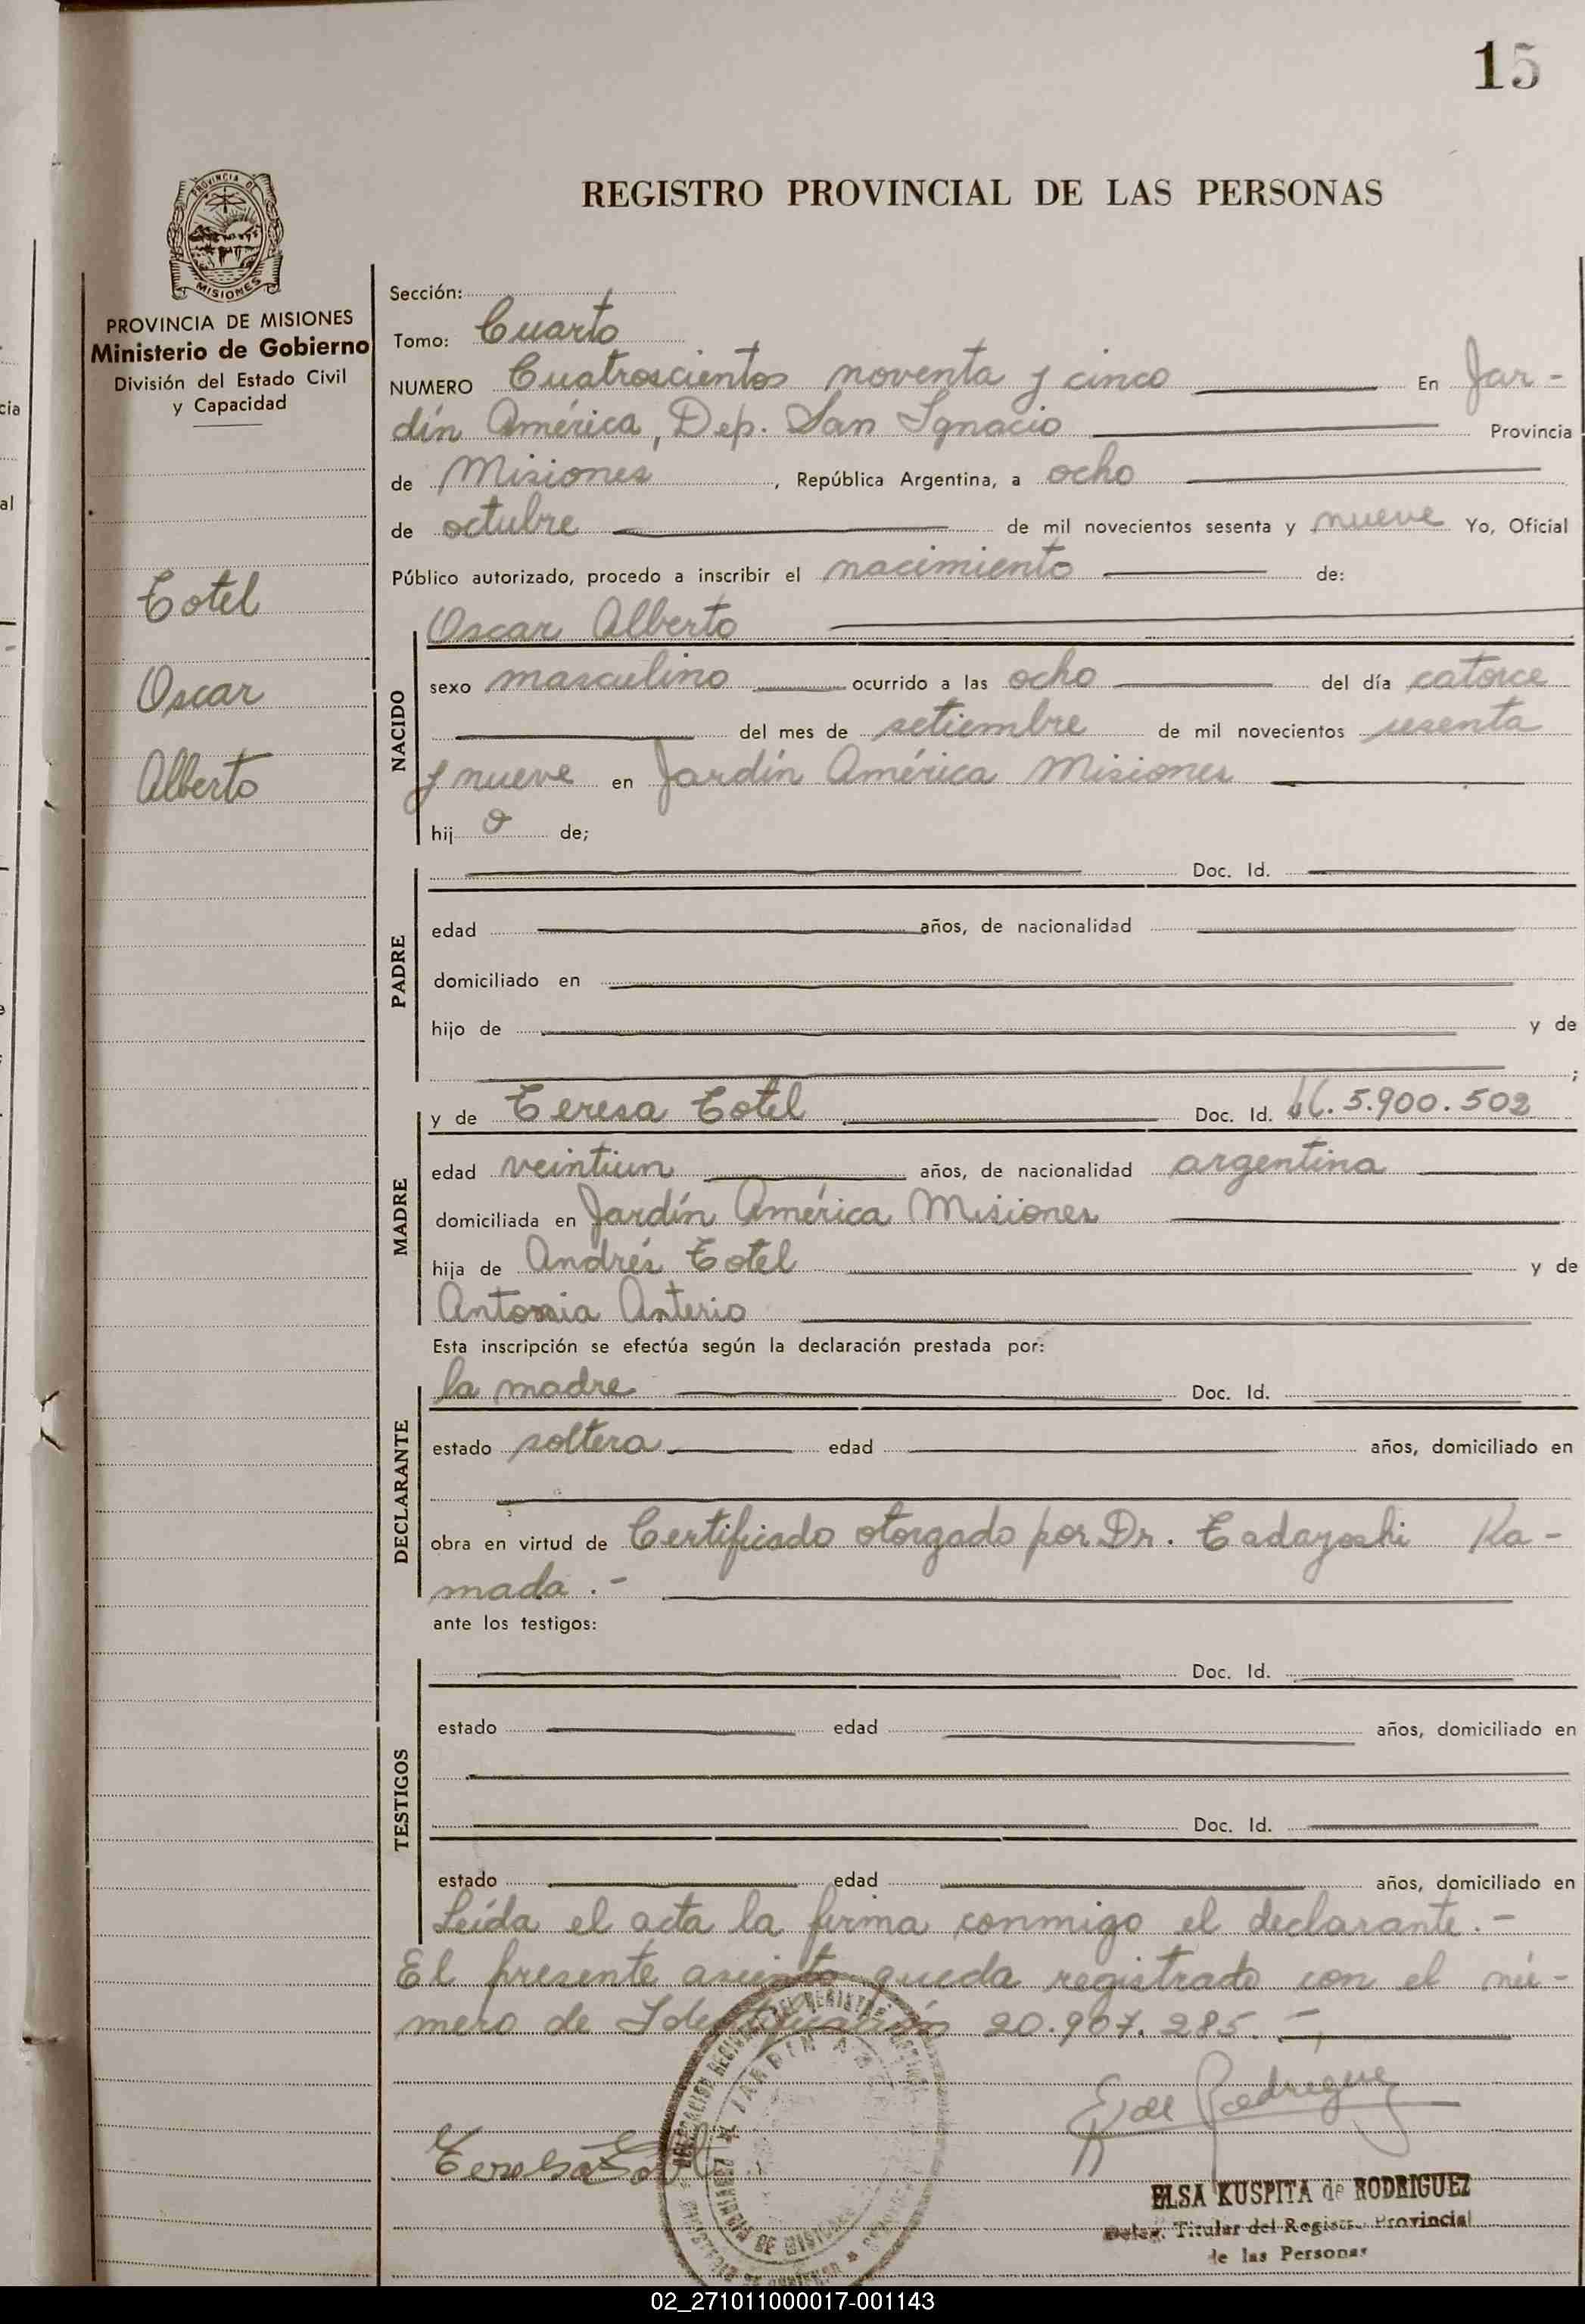 15
REGISTRO PROVINCIAL DE LAS PERSONAS
PROVINCIA DE
MISIONES
PROVINCIA DE MISIONES
Ministerio de Gobierno
División del Estado Civil
y Capacidad
Totel
Oscar
Alberto
Sección:
Tomo: Cuarto
NUMERO Cuatroscientos noventa y cinco En Jar-
dín América, Dep. San Ignacio Provincia
de Misiones, República Argentina, a ocho
de octubre de mil novecientos sesenta y nueve Yo, Oficial
Público autorizado, procedo a inscribir el nacimiento de:
Oscar Alberto
NACIDO
sexo masculino ocurrido a las ocho del día catorce
del mes de setiembre de mil novecientos sesenta
y nueve en Jardín América Misiones
hij o de;
PADRE
Doc. Id.
edad años, de nacionalidad
domiciliado en
hijo de y de
;
MADRE
y de Teresa Totel Doc. Id. 5.900.502
edad veintiun años, de nacionalidad argentina
domiciliada en Jardín América Misiones
hija de Andrés Totel y de
Antonia Anterio
Esta inscripción se efectúa según la declaración prestada por:
DECLARANTE
la madre Doc. Id.
estado soltera edad años, domiciliado en
obra en virtud de Certificado otorgado por Dr. Tadayoshi Ka-
mada.-
ante los testigos:
TESTIGOS
Doc. Id.
estado edad años, domiciliado en
Doc. Id.
estado edad años, domiciliado en
Leída el acta la firma conmigo el declarante.-
El presente asiento queda registrado con el nú-
mero de Identificación 20.907.285.-
E de Rodriguez
Teresa Totel
ELSA KUSPITA de RODRIGUEZ
Deleg. Titular del Registro Provincial
de las Personas
02_271011000017-001143